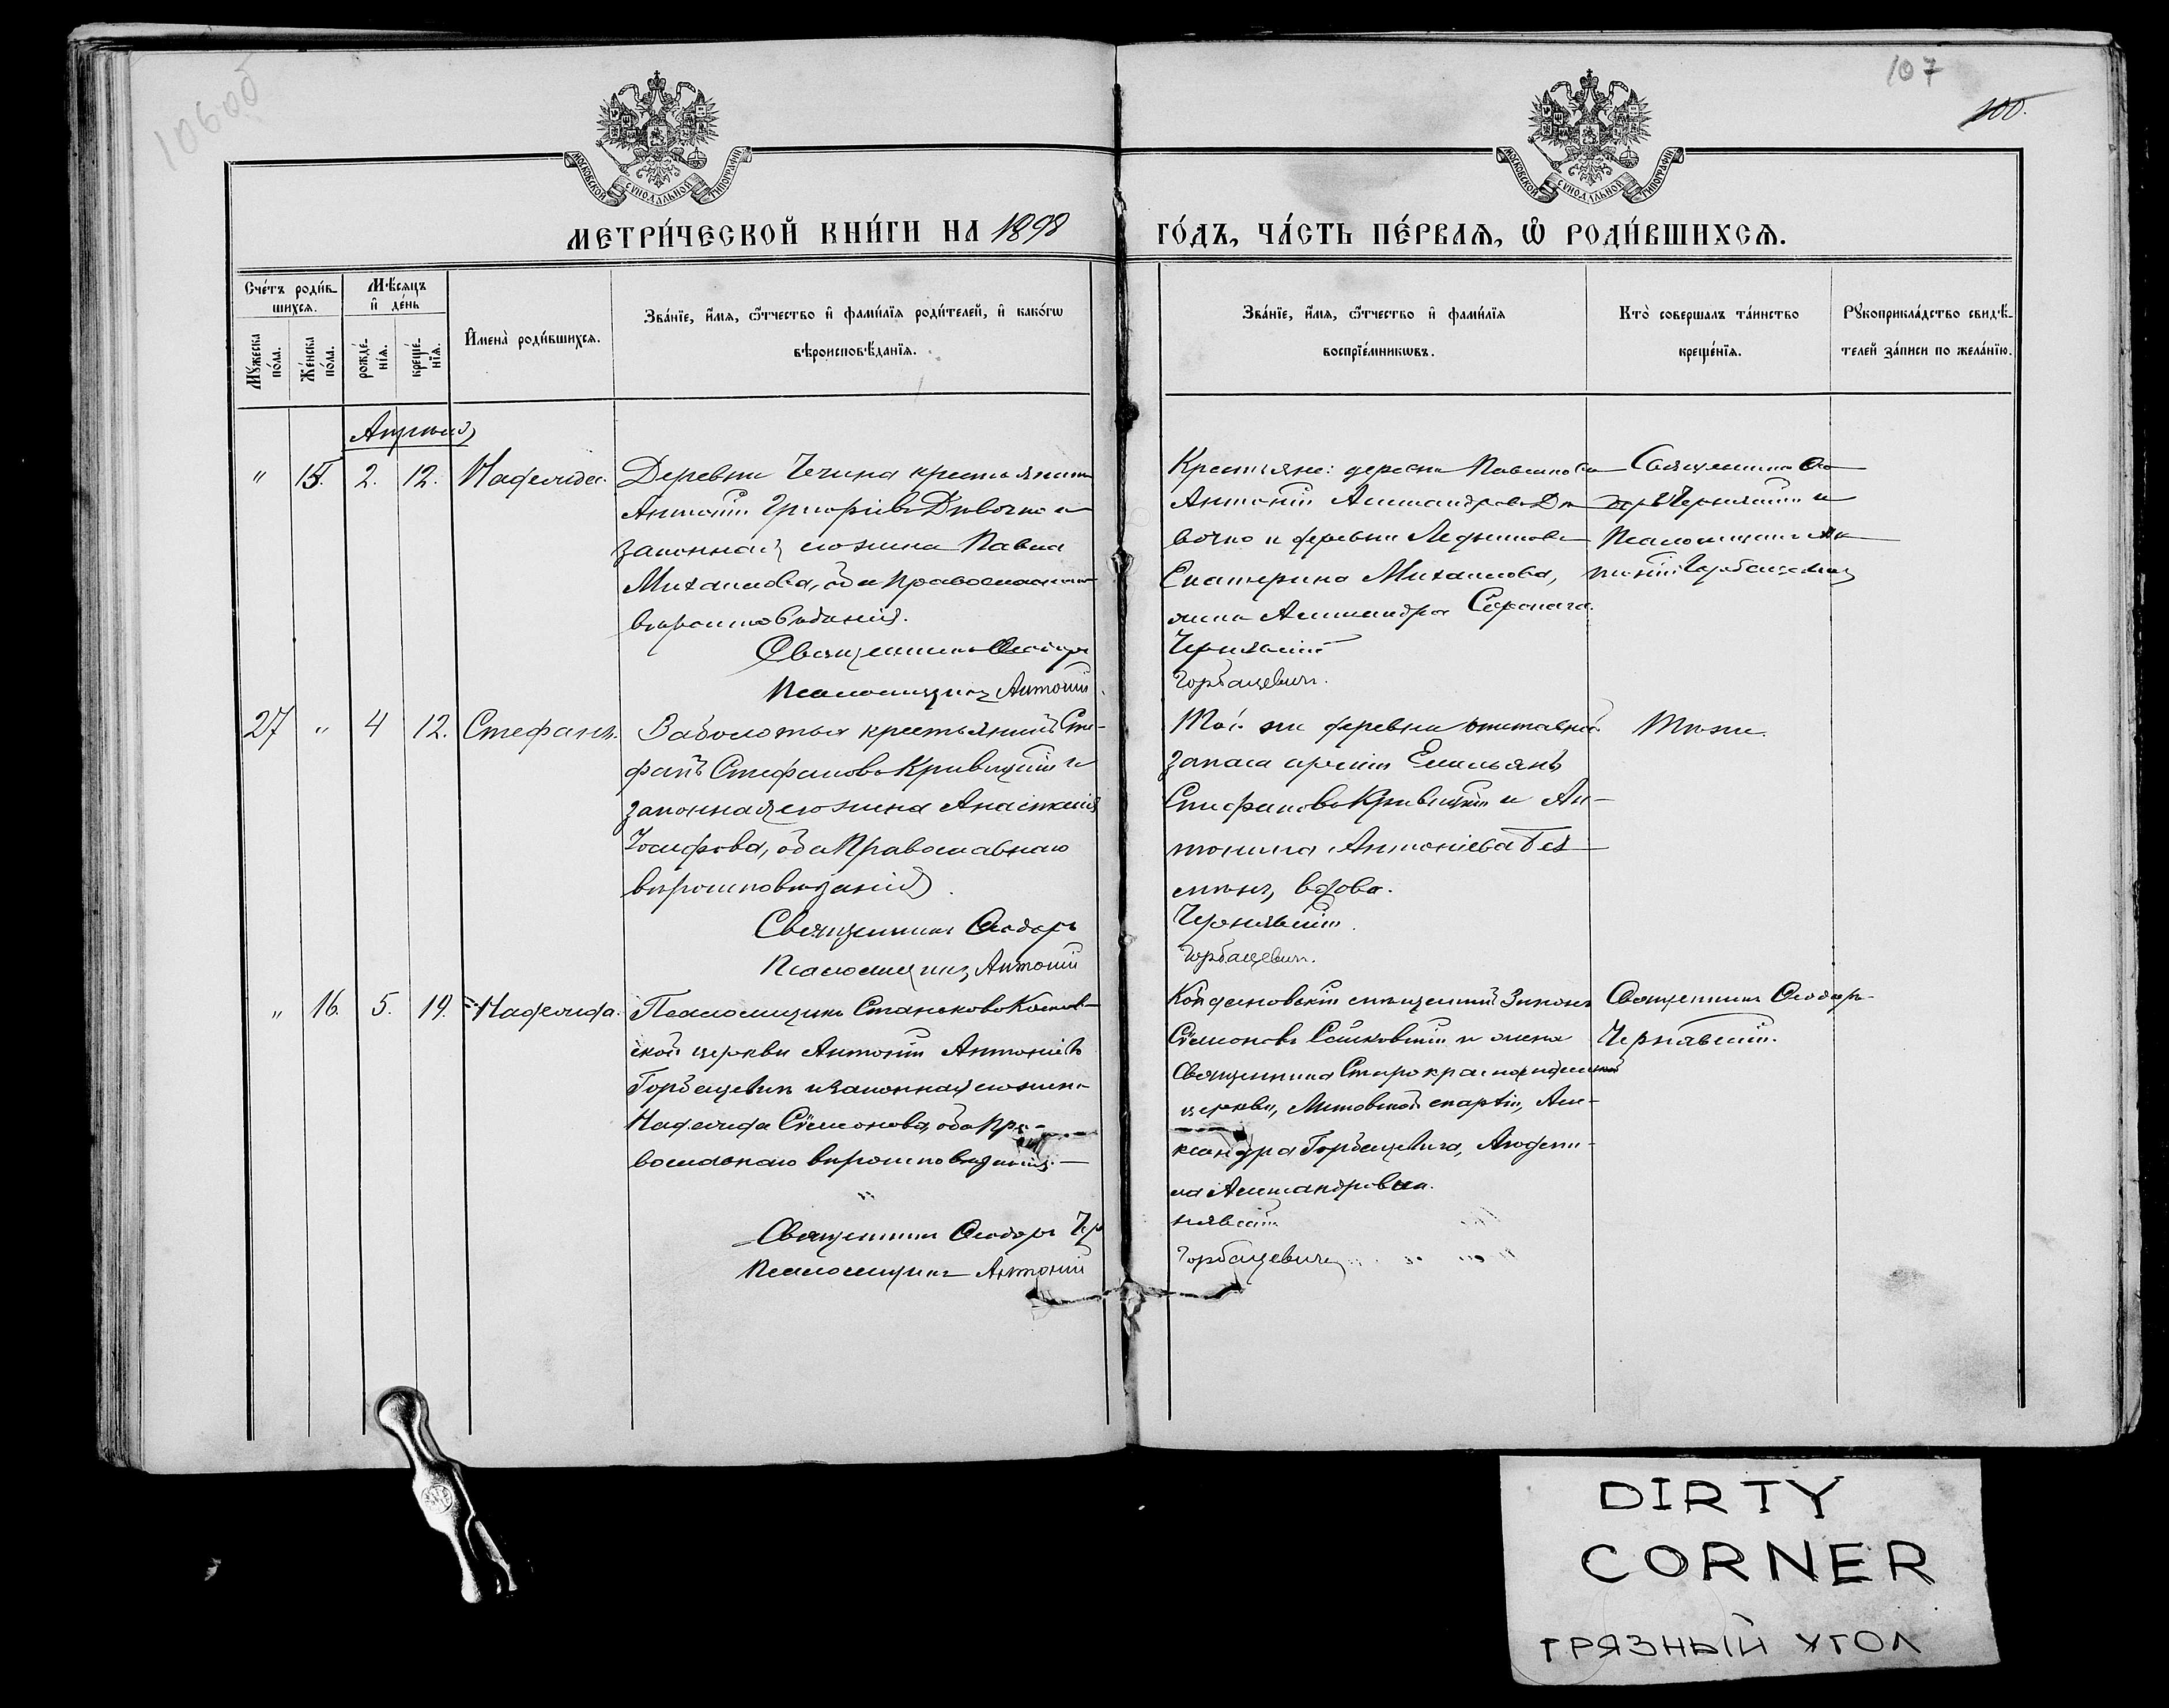 106об
107
100.
МОСКОВСКОЙ СѴНОДАЛЬНОЙ ТИПОГРАФІИ
МОСКОВСКОЙ СѴНОДАЛЬНОЙ ТИПОГРАФІИ
МЕТРИ́ЧЕСКОЙ КНИ́ГИ НА 1898
ГО́ДЪ, ЧА́СТЬ ПЕ́РВАѦ, Ѽ РОДИ́ВШИХСѦ.
Сче́тъ роди́в-
шихсѧ.
Мꙋ́жеска по́ла.
Же́нска по́ла.
Мѣ́сѧцъ
и҆ де́нь
рожде́-
нїѧ.
креще́-
нїѧ.
И҆мена̀ роди́вшихсѧ.
Зва́нїе, и҆́мѧ, ѻ҆́тчество и҆ фами́лїѧ роди́телей, и҆ како́гѡ
вѣроисповѣ́данїѧ.
Зва́нїе, и҆́мѧ, ѻ҆́тчество и҆ фами́лїѧ
воспрїе́мникѡвъ.
Кто̀ совершалъ та́инство
креще́нїѧ.
Рꙋкоприкла́дство свидѣ́-
телей за́писи по жела́нїю.
Апрель
" 15. 2. 12. Надежда.
Деревни Чечина крестьянинъ
Антоній Григорьевъ Дивочко и
законная его жена Павла
Михаилова, оба православнаго
вѣроисповѣданія.
Священникъ Ѳеодоръ
Псаломщикъ Антоній
Крестьяне: деревни
Антоній Александровъ Ди-
вочко и деревни
Екатерина Михаилова,
жена Александра
Чернявскій
Горбацевичъ.
Священникъ Ѳео-
доръ Чернявскій и
Псаломщикъ Ан-
тоній Горбацевичъ
27 " 4 12. Стефанъ.
Заболотья крестьянинъ Сте-
фанъ Стефановъ Кривицкій и
законная его жена Анастасія
Іосифова, оба Православнаго
вѣроисповѣданія.
Священникъ Ѳеодоръ
Псаломщикъ Антоній
Той же деревни
запаса армiи Емельянъ
Стефановъ Кривицкій и Ан-
тонина Антоніева
вдова.
Чернявскій.
Горбацевичъ.
Тѣже.
" 16. 5. 19. Надежда.
Псаломщикъ Станьково
ской церкви Антоній Антоніевъ
Горбацевичъ и законная его жена
Надежда Сѵмеонова, оба Пра-
вославнаго вѣроисповѣданія.—
Священникъ Ѳеодоръ Чер
Псаломщикъ Антоній
Сѵмеоновъ и жена
Священника
церкви, Литовской епархіи, Але-
ксандра Горбацевича, Людми-
ла Александровна.
нявскій
Горбацевичъ
Священникъ Ѳеодоръ
Чернявскій.
DIRTY
CORNER
ГРЯЗНЫЙ УГОЛ